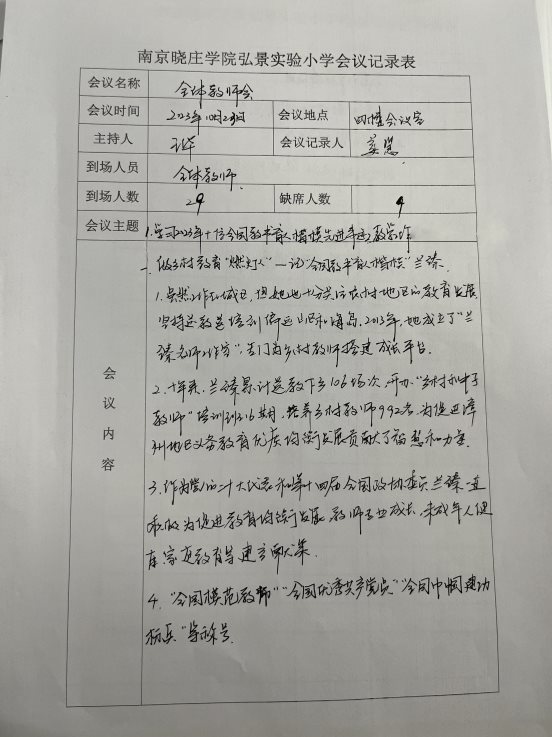 南京晓庄学院弘景实验小学会议记录表
会议名称 全体教师会
会议时间 2023年10月23日 会议地点 四楼会议室
主持人 会议记录人
到场人员 全体教师
到场人数 29 缺席人数 4
会议主题 1.学习2023年十位全国教书育人楷模先进事迹
会议内容
一、做乡村教育“燃灯人”——记“全国教书育人楷模”兰臻
1.虽然工作在城区,但她也十分关注农村地区的教育发展,
坚持送教送培到偏远山区和海岛。2013年,她成立了“兰
臻名师工作室”,专门为乡村教师搭建成长平台。
2.十年来,兰臻累计送教下乡106场次,开办“乡村种子
教师”培训班16期,培养乡村教师992名,为促进漳
州地区义务教育优质均衡发展贡献了智慧和力量。
3.作为党的二十大代表和第十四届全国政协委员,兰臻一直
积极为促进教育均衡发展、教师专业成长、未成年人健
康、家庭教育等建言献策。
4.“全国模范教师”“全国优秀共产党员”“全国巾帼建功
标兵”等称号。